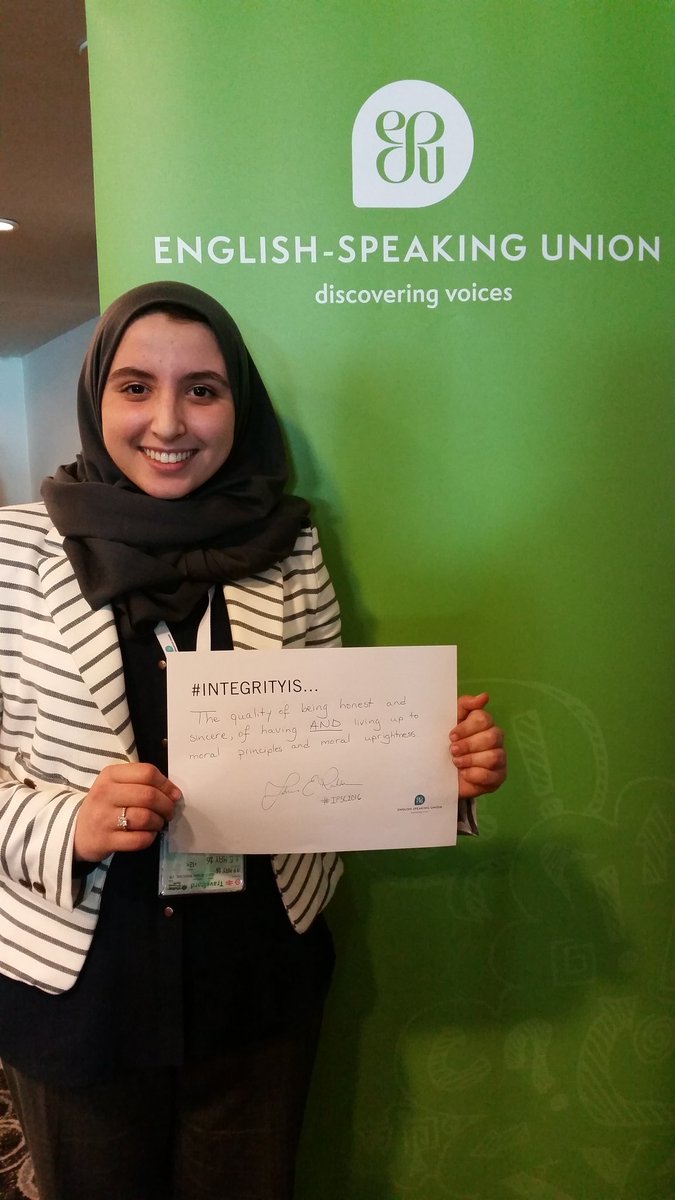 epu
ENGLISH-SPEAKING UNION
discovering voices
#INTEGRITYIS...
The quality of being honest and
sincere, of having AND living up to
moral principles and moral uprightness.
#IPSC2016
ENGLISH-SPEAKING UNION
Travelcard